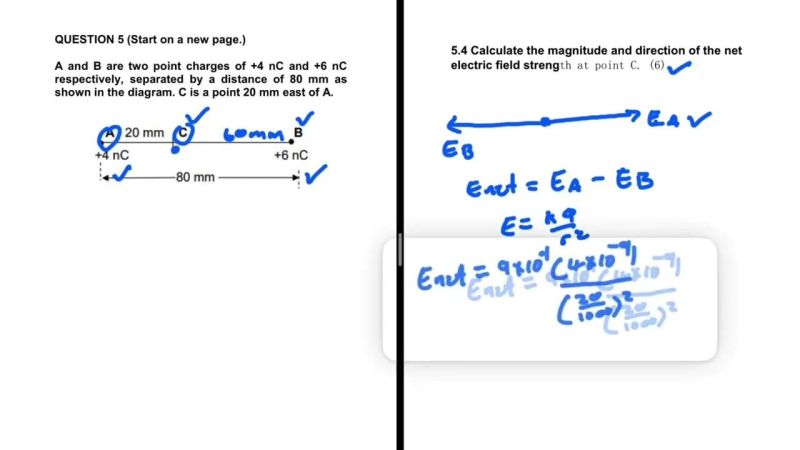 QUESTION 5 (Start on a new page.)
A and B are two point charges of +4 nC and +6 nC
respectively, separated by a distance of 80 mm as
shown in the diagram. C is a point 20 mm east of A.
A 20 mm C 60mm B
+4 nC +6 nC
80 mm
5.4 Calculate the magnitude and direction of the net
electric field strength at point C. (6)
EA
EB
Enet = EA - EB
E = kq/r²
Enet = 9×10⁹ (4×10⁻⁹)
(20/1000)²